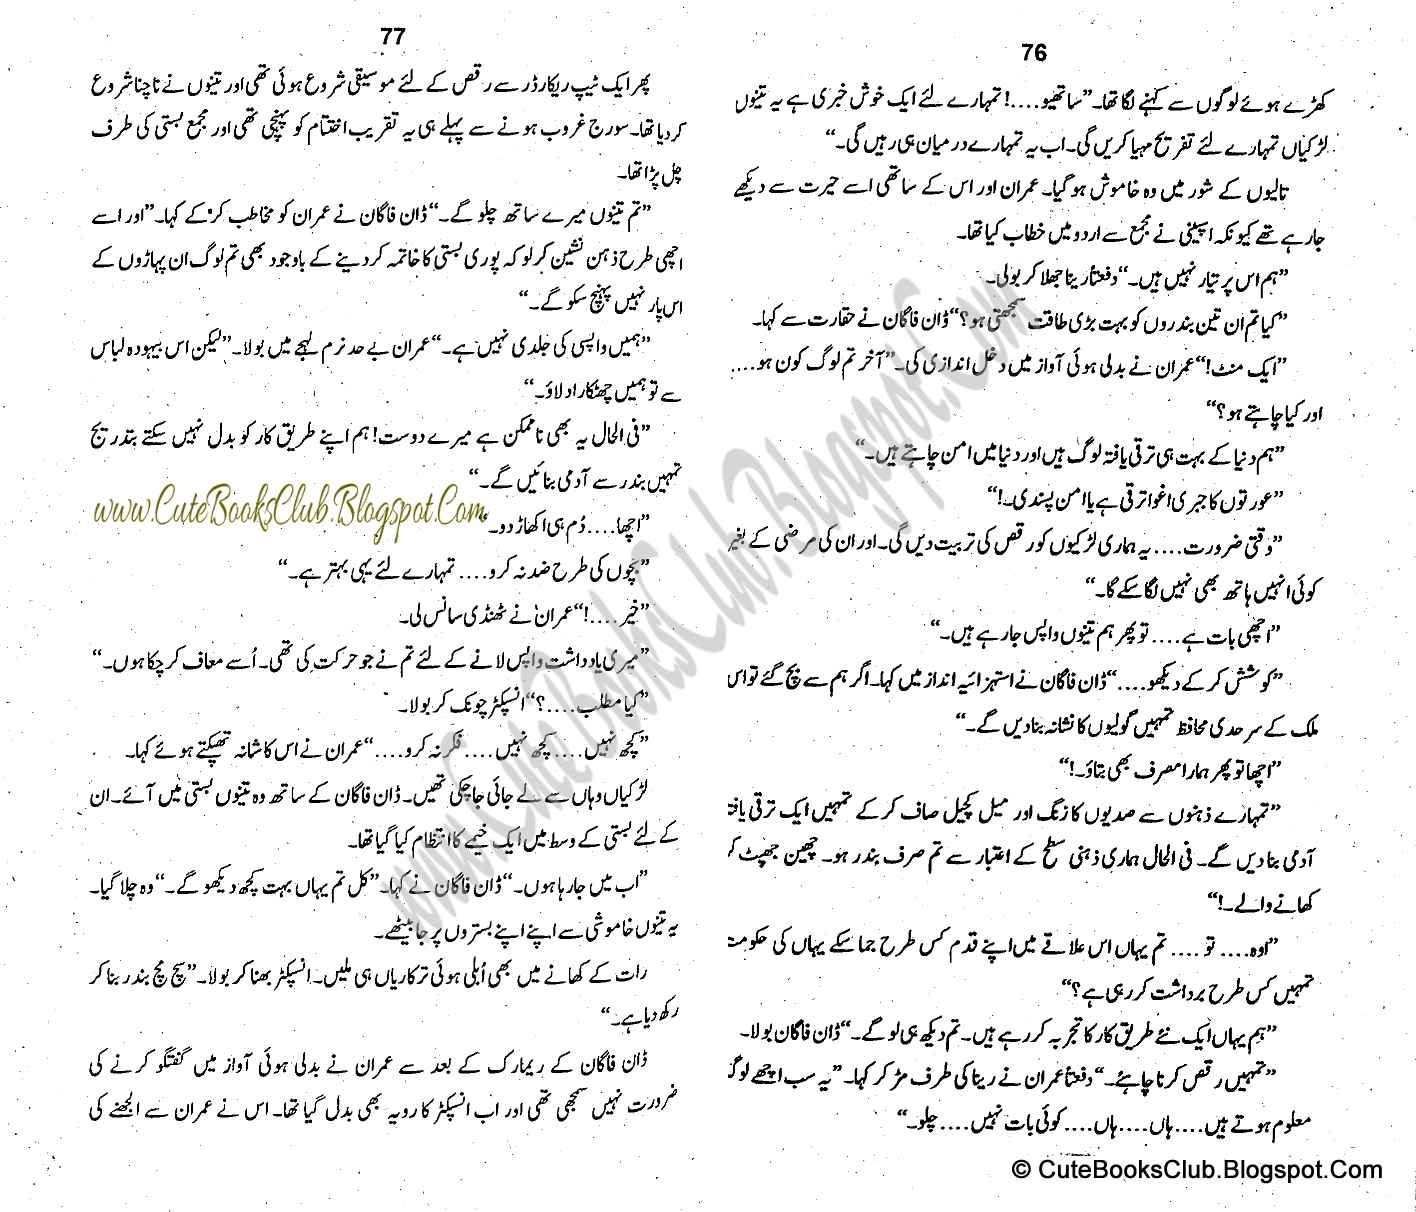 76
کھڑے ہوئے لوگوں سے کہنے لگا تھا۔ ”ساتھیو....! تمہارے لئے ایک خوش خبری ہے یہ تینوں
لڑکیاں تمہارے لئے تفریح مہیا کریں گی۔ اب یہ تمہارے درمیان ہی رہیں گی۔“
تالیوں کے شور میں وہ خاموش ہو گیا۔ عمران اور اس کے ساتھی اسے حیرت سے دیکھے
جا رہے تھے کیونکہ اسپینی نے مجمع سے اردو میں خطاب کیا تھا۔
”ہم اس پر تیار نہیں ہیں۔“ دفعتاً رینا جھلا کر بولی۔
”کیا تم ان تین بندروں کو بہت بڑی طاقت سمجھتی ہو؟“ ڈان فاگان نے حقارت سے کہا۔
”ایک منٹ!“ عمران نے بدلی ہوئی آواز میں دخل اندازی کی۔ ”آخر تم لوگ کون ہو....
اور کیا چاہتے ہو؟“
”ہم دنیا کے بہت ہی ترقی یافتہ لوگ ہیں اور دنیا میں امن چاہتے ہیں۔“
”عورتوں کا جبری اغوا ترقی ہے یا امن پسندی۔!“
”وقتی ضرورت.... یہ ہماری لڑکیوں کو رقص کی تربیت دیں گی۔ اور ان کی مرضی کے بغیر
کوئی انہیں ہاتھ بھی نہیں لگا سکے گا۔“
”اچھی بات ہے.... تو پھر ہم تینوں واپس جا رہے ہیں۔“
”کوشش کر کے دیکھو....“ ڈان فاگان نے استہزائیہ انداز میں کہا۔ اگر ہم سے بچ گئے تو اس
ملک کے سرحدی محافظ تمہیں گولیوں کا نشانہ بنا دیں گے۔“
”اچھا تو پھر ہمارا مصرف بھی بتاؤ۔!“
”تمہارے ذہنوں سے صدیوں کا زنگ اور میل کچیل صاف کر کے تمہیں ایک ترقی یافتہ
آدمی بنا دیں گے۔ فی الحال ہماری ذہنی سطح کے اعتبار سے تم صرف بندر ہو۔ چھین جھپٹ کر
کھانے والے۔!“
”اوہ.... تو.... تم یہاں اس علاقے میں اپنے قدم کس طرح جما سکے یہاں کی حکومت
تمہیں کس طرح برداشت کر رہی ہے؟“
”ہم یہاں ایک نئے طریق کار کا تجربہ کر رہے ہیں۔ تم دیکھ ہی لو گے۔“ ڈان فاگان بولا۔
”تمہیں رقص کرنا چاہئے۔“ دفعتاً عمران نے رینا کی طرف مڑ کر کہا۔ ”یہ سب اچھے لوگ
معلوم ہوتے ہیں.... ہاں.... ہاں.... کوئی بات نہیں.... چلو۔“
77
پھر ایک ٹیپ ریکارڈر سے رقص کے لئے موسیقی شروع ہوئی تھی اور تینوں نے ناچنا شروع
کر دیا تھا۔ سورج غروب ہونے سے پہلے ہی یہ تقریب اختتام کو پہنچی تھی اور مجمع بستی کی طرف
چل پڑا تھا۔
”تم تینوں میرے ساتھ چلو گے۔“ ڈان فاگان نے عمران کو مخاطب کر کے کہا۔ ”اور اسے
اچھی طرح ذہن نشین کر لو کہ پوری بستی کا خاتمہ کر دینے کے باوجود بھی تم لوگ ان پہاڑوں کے
اس پار نہیں پہنچ سکو گے۔“
”ہمیں واپسی کی جلدی نہیں ہے۔“ عمران بے حد نرم لہجے میں بولا۔ ”لیکن اس بیہودہ لباس
سے تو ہمیں چھٹکارا دلاؤ۔“
”فی الحال یہ بھی ناممکن ہے میرے دوست! ہم اپنے طریق کار کو بدل نہیں سکتے بتدریج
تمہیں بندر سے آدمی بنائیں گے۔“
www.CuteBooksClub.Blogspot.Com
”اچھا.... دُم ہی اکھاڑ دو۔“
”بچوں کی طرح ضد نہ کرو.... تمہارے لئے یہی بہتر ہے۔“
”خیر....!“ عمران نے ٹھنڈی سانس لی۔
”میری یادداشت واپس لانے کے لئے تم نے جو حرکت کی تھی۔ اُسے معاف کر چکا ہوں۔“
”کیا مطلب....؟“ انسپکٹر چونک کر بولا۔
”کچھ نہیں.... کچھ نہیں.... فکر نہ کرو....“ عمران نے اس کا شانہ تھپکتے ہوئے کہا۔
لڑکیاں وہاں سے لے جائی جا چکی تھیں۔ ڈان فاگان کے ساتھ وہ تینوں بستی میں آئے۔ ان
کے لئے بستی کے وسط میں ایک خیمے کا انتظام کیا گیا تھا۔
”اب میں جا رہا ہوں۔“ ڈان فاگان نے کہا۔ ”کل تم یہاں بہت کچھ دیکھو گے۔“ وہ چلا گیا۔
یہ تینوں خاموشی سے اپنے اپنے بستروں پر جا بیٹھے۔
رات کے کھانے میں بھی اُبلی ہوئی ترکاریاں ہی ملیں۔ انسپکٹر بھنا کر بولا۔ ”سچ مچ بندر بنا کر
رکھ دیا ہے۔“
ڈان فاگان کے ریمارک کے بعد سے عمران نے بدلی ہوئی آواز میں گفتگو کرنے کی
ضرورت نہیں سمجھی تھی اور اب انسپکٹر کا رویہ بھی بدل گیا تھا۔ اس نے عمران سے الجھنے کی
www.CuteBooksClub.Blogspot.Com
© CuteBooksClub.Blogspot.Com